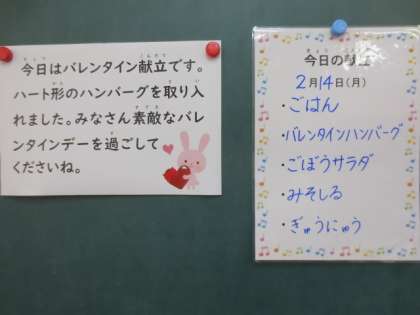 今日はバレンタイン献立です。
ハート形のハンバーグを取り入
れました。みなさん素敵なバレ
ンタインデーを過ごして
くださいね。
今日の献立
2月14日(月)
・ごはん
・バレンタインハンバーグ
・ごぼうサラダ
・みそしる
・ぎゅうにゅう